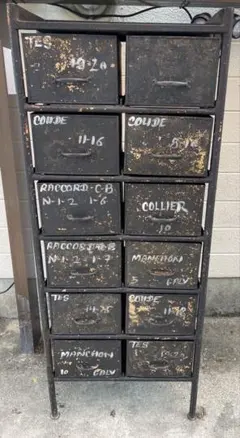 TES
10-20
COUDE
11-16
COUDE
RACCORD-C-B
N-1-2 1-6
COLLIER
10
RACCORD-C-B
N-1-2 1-7
MANCHON
5 GALV
TES
COUDE
MANCHON
GALV
TES